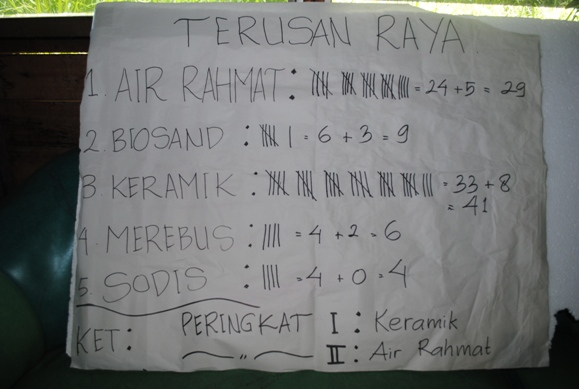 TERUSAN RAYA
1. AIR RAHMAT: 𝍸 𝍸 𝍸 𝍸 |||| = 24 + 5 = 29
2. BIOSAND : 𝍸 | = 6 + 3 = 9
3. KERAMIK : 𝍸 𝍸 𝍸 𝍸 𝍸 𝍸 ||| = 33 + 8
= 41
4. MEREBUS : |||| = 4 + 2 = 6
5. SODIS : |||| = 4 + 0 = 4
KET: PERINGKAT I : Keramik
— " — II : Air Rahmat